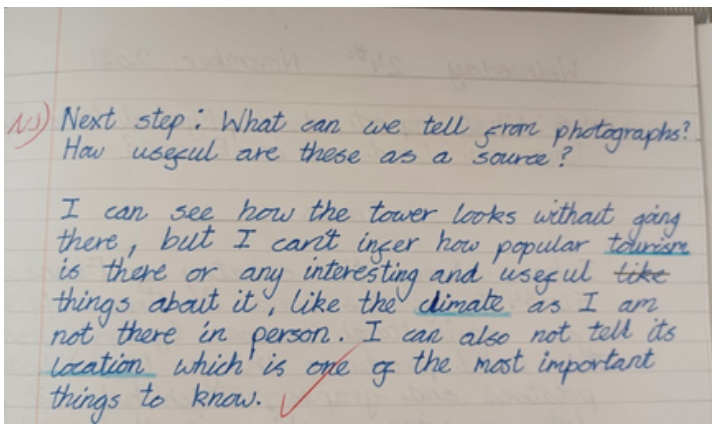 NS) Next step: What can we tell from photographs?
How useful are these as a source?
I can see how the tower looks without going
there, but I can't infer how popular tourism
is there or any interesting and useful like
things about it, like the climate as I am
not there in person. I can also not tell its
location which is one of the most important
things to know.